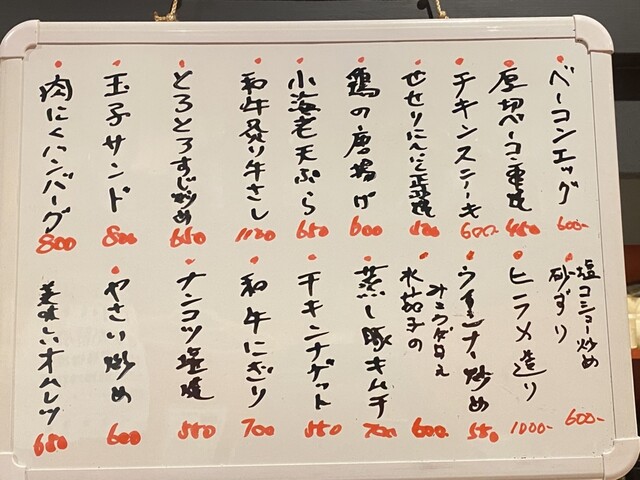 ベーコンエッグ
600-
厚切ベーコン串焼
450
チキンステーキ
600-
せせりにんにく正油焼
500
鶏の唐揚げ
600
小海老天ぷら
650
和牛炙り牛さし
1100
とろとろすじ炒め
650
玉子サンド
800
肉にくハンバーグ
800
塩コショー炒め
砂ずり
600-
ヒラメ造り
1000-
ウインナー炒め
550
水茄子の
600-
蒸し豚キムチ
700
チキンナゲット
550
和牛にぎり
700
ナンコツ塩焼
550
やさい炒め
600
美味しいオムレツ
650